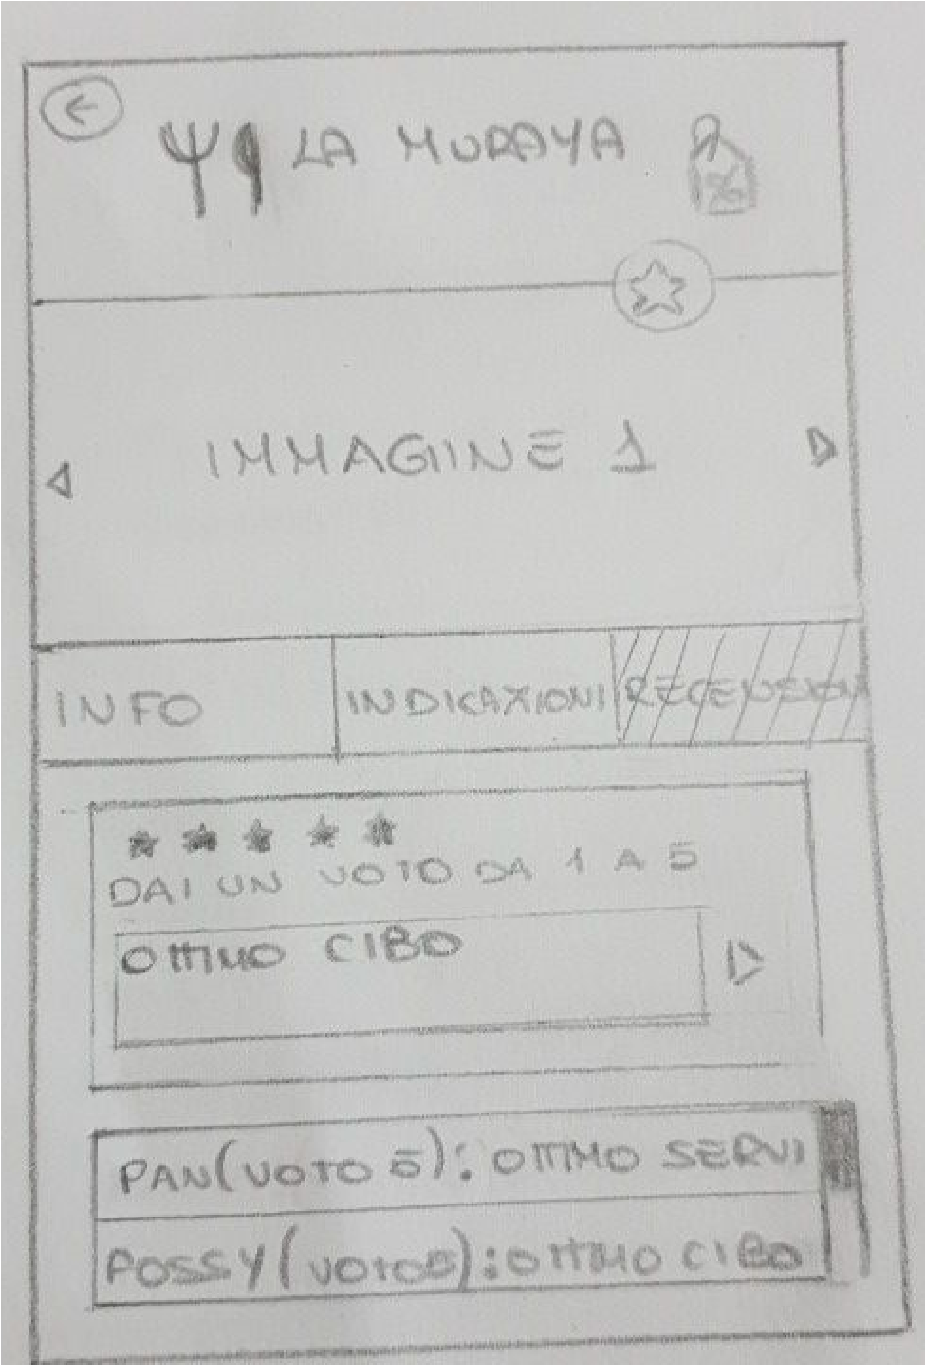 LA MURAYA
IMMAGIINE 1
INFO
INDICAZIONI
RECENSIONI
DAI UN VOTO DA 1 A 5
OTTIMO CIBO
PAN(VOTO 5): OTTIMO SERVI
POSSY(VOTO5):OTTIMO CIBO